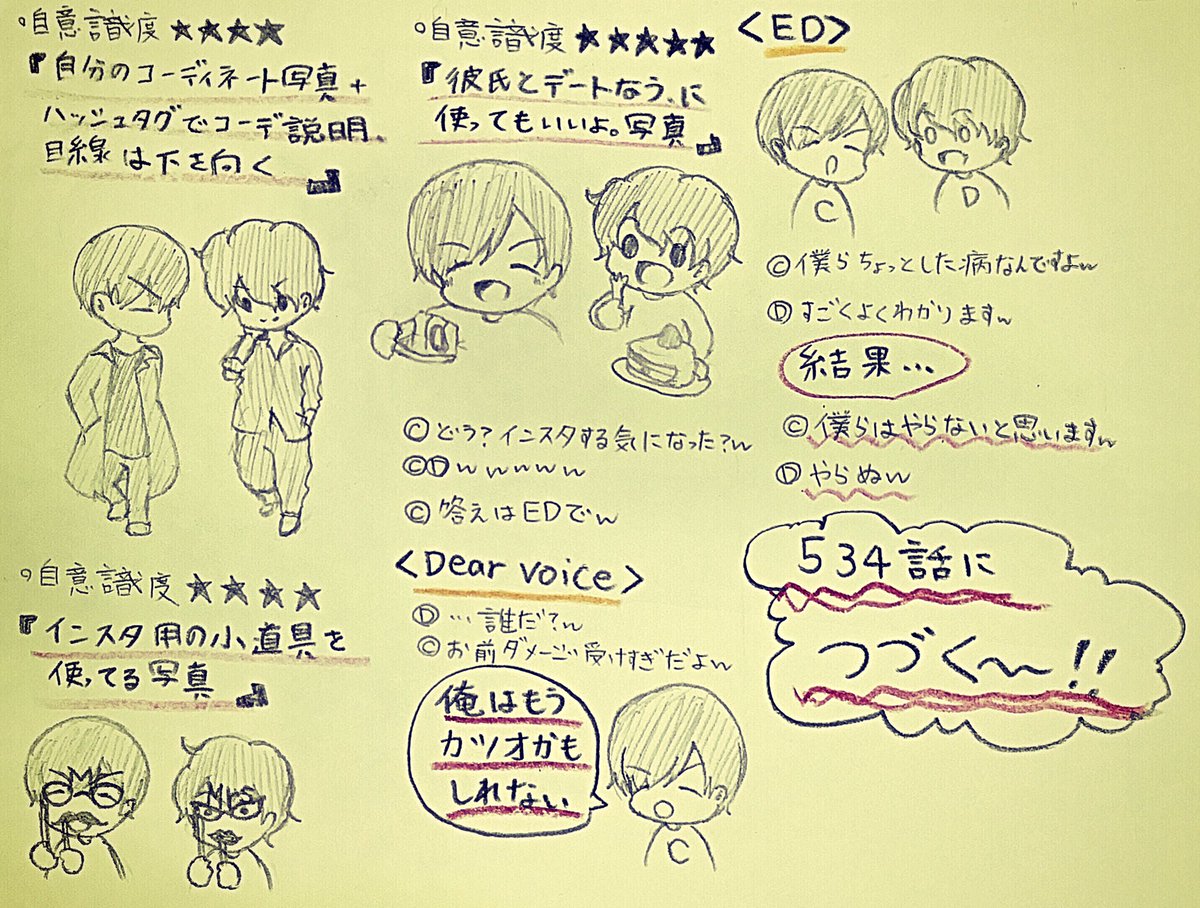 ○自意識度 ★★★★
『自分のコーディネート写真+
ハッシュタグでコーデ説明、
目線は下を向く』
○自意識度 ★★★★
『インスタ用の小道具を
使ってる写真』
Mr
Mrs
○自意識度 ★★★★★
『彼氏とデートなう、に
使ってもいいよ。写真』
Ⓒどう?インスタする気になった?w
ⒸⒹwwwww
Ⓒ答えはEDでw
<Dear voice>
Ⓓ…誰だ?w
Ⓒお前ダメージ受けすぎだよw
俺はもう
カツオかも
しれない
C
<ED>
C
D
Ⓒ僕らちょっとした病なんですよw
Ⓓすごくよくわかりますw
結果…
Ⓒ僕らはやらないと思いますw
Ⓓやらぬw
534話に
つづく〜!!